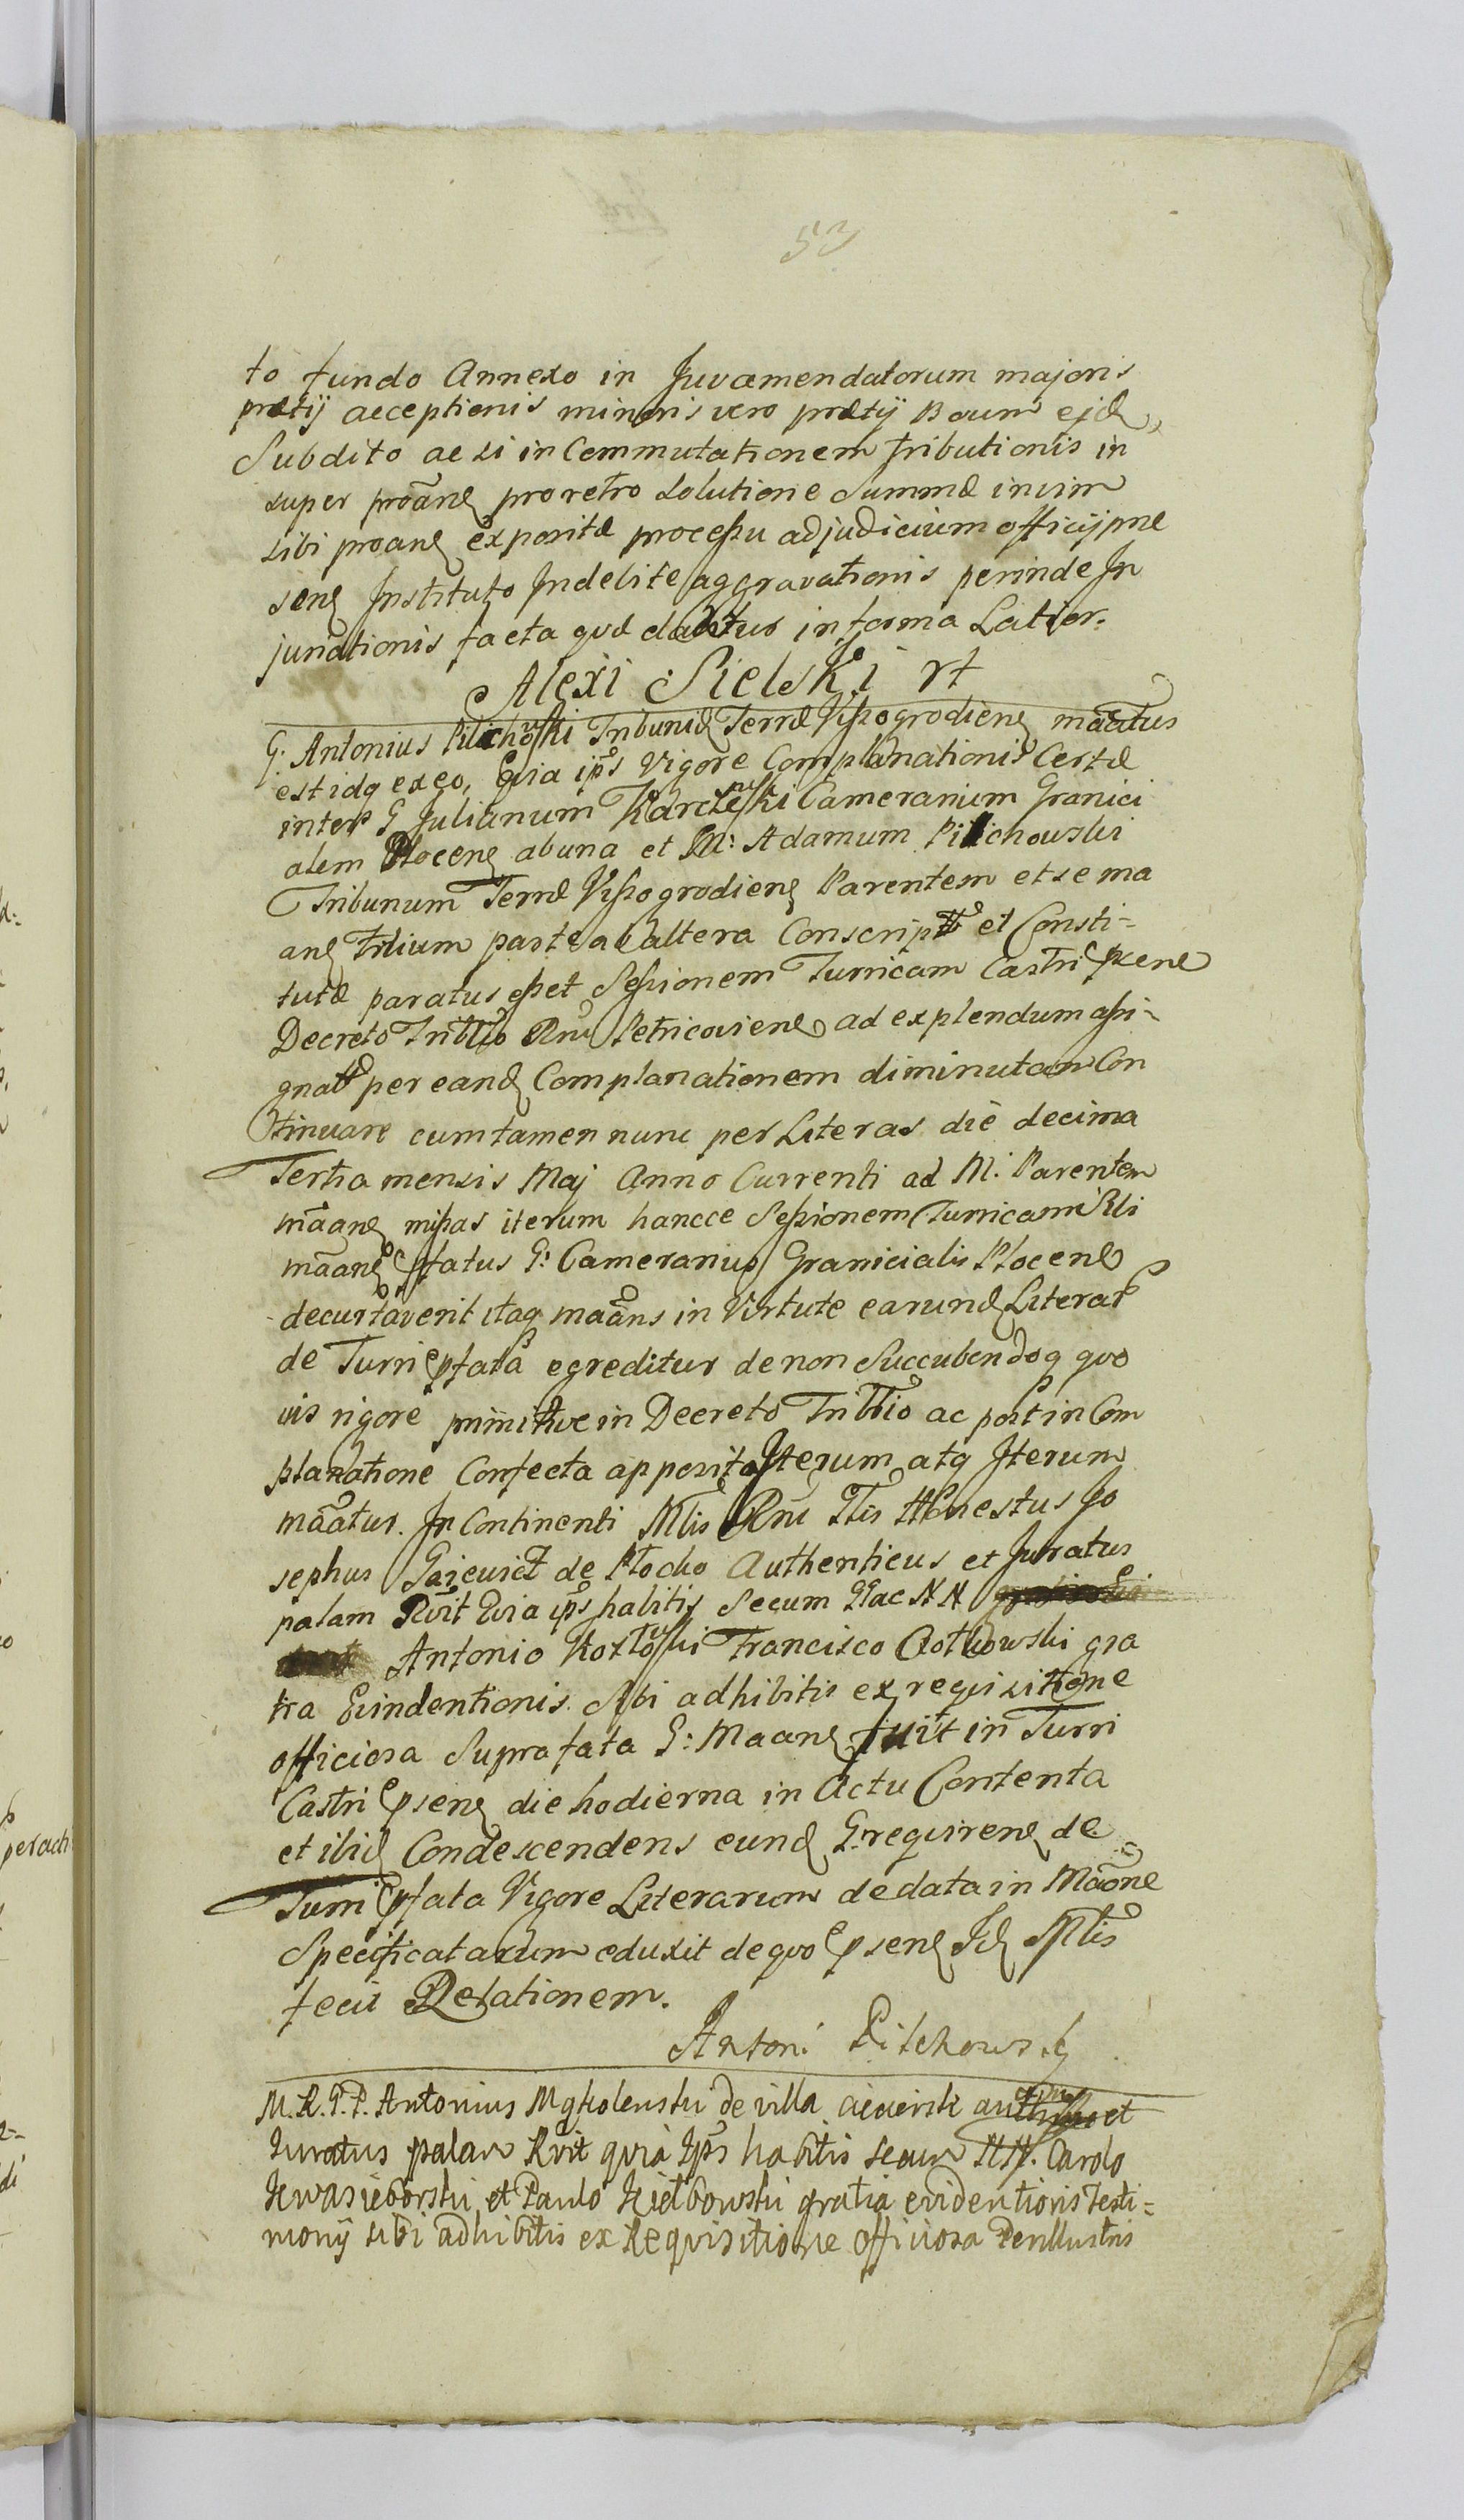 53
to fundo Annexo in Juvamendatorum majoris
prætij acceptionis minoris vero prætij Boum ejd
Subdito ac si in Commutationem tributionis in
super proãnę pro retro solutione Summæ in vim
sibi proanę expositæ processu ad judicium officij præ
senę Instituto Indebite aggravationis perinde In
junctionis facta qvæ datur in forma Latior.
Alexi Sielski rt
G. Antonius Pilichowski Tribunid Terræ Vissogrodienę mãatus
est idq ex eo, Qvia ips Vigore Complanationis Certæ
inter G Julianum Karczewski Camerarium Granici
alem Plocenę ab una et M: Adamum Pilichowski
Tribunum Terræ Vissogrodienę Parentem et se ma
anę Filium parte ab altera Conscript et Consti-
tutæ paratus esset Sessionem Turricam Castri psene
Decreto Tribtio Rni Petricoviene ad explendum assi-
gnat per eand Complanationem diminutam Con
tinuare cum tamen nunc per Literas die decima
Tertia mensis Maj Anno Currenti ad M. Parentem
mãanę missas iterum hancce Sessionem Turricam Sibi
mãanę pfatus G: Camerarius Granicialis Plocene
decurtaverit itaq maãns in Virtute earund Literar
de Turri pfata egreditur de non Succubendoq qvo
vis rigore primitive in Decreto Tribtio ac post in Com
planatione Confecta apposito Iterum atq Iterum
mãatur. In Continenti Mtis Rni Gtis Honestus Jo
sephus Gajewicz de Plocko Authenticus et Juratus
palam Rvit Qvia ips habitis Secum GGac NN
Antonio Kozłowski Francisco Rotkowski gra
tia Evindentionis Sibi adhibitis ex reqvisitione
officiosa Suprafata G: Maanę fuit in Turri
Castri psenę die hodierna in Actu Contenta
et ibid Condescendens eund G: reqvirenę de
Turri pfata Vigore Literarum de data in Mãone
Specificatarum eduxit de qvo psenę Id Mtis
fecit Relationem.
Antoni Pilchowsky
M.R.G.P. Antonius Mgkolenski de villa authen et
Iuratus palam Rvit qvia Ips habitis secum NN. Carolo
Kwasieborski et Paulo Kiełbowski gratia evidentioris Testi=
monij sibi adhibitis ex Reqvisitione Officiosa Perillustris